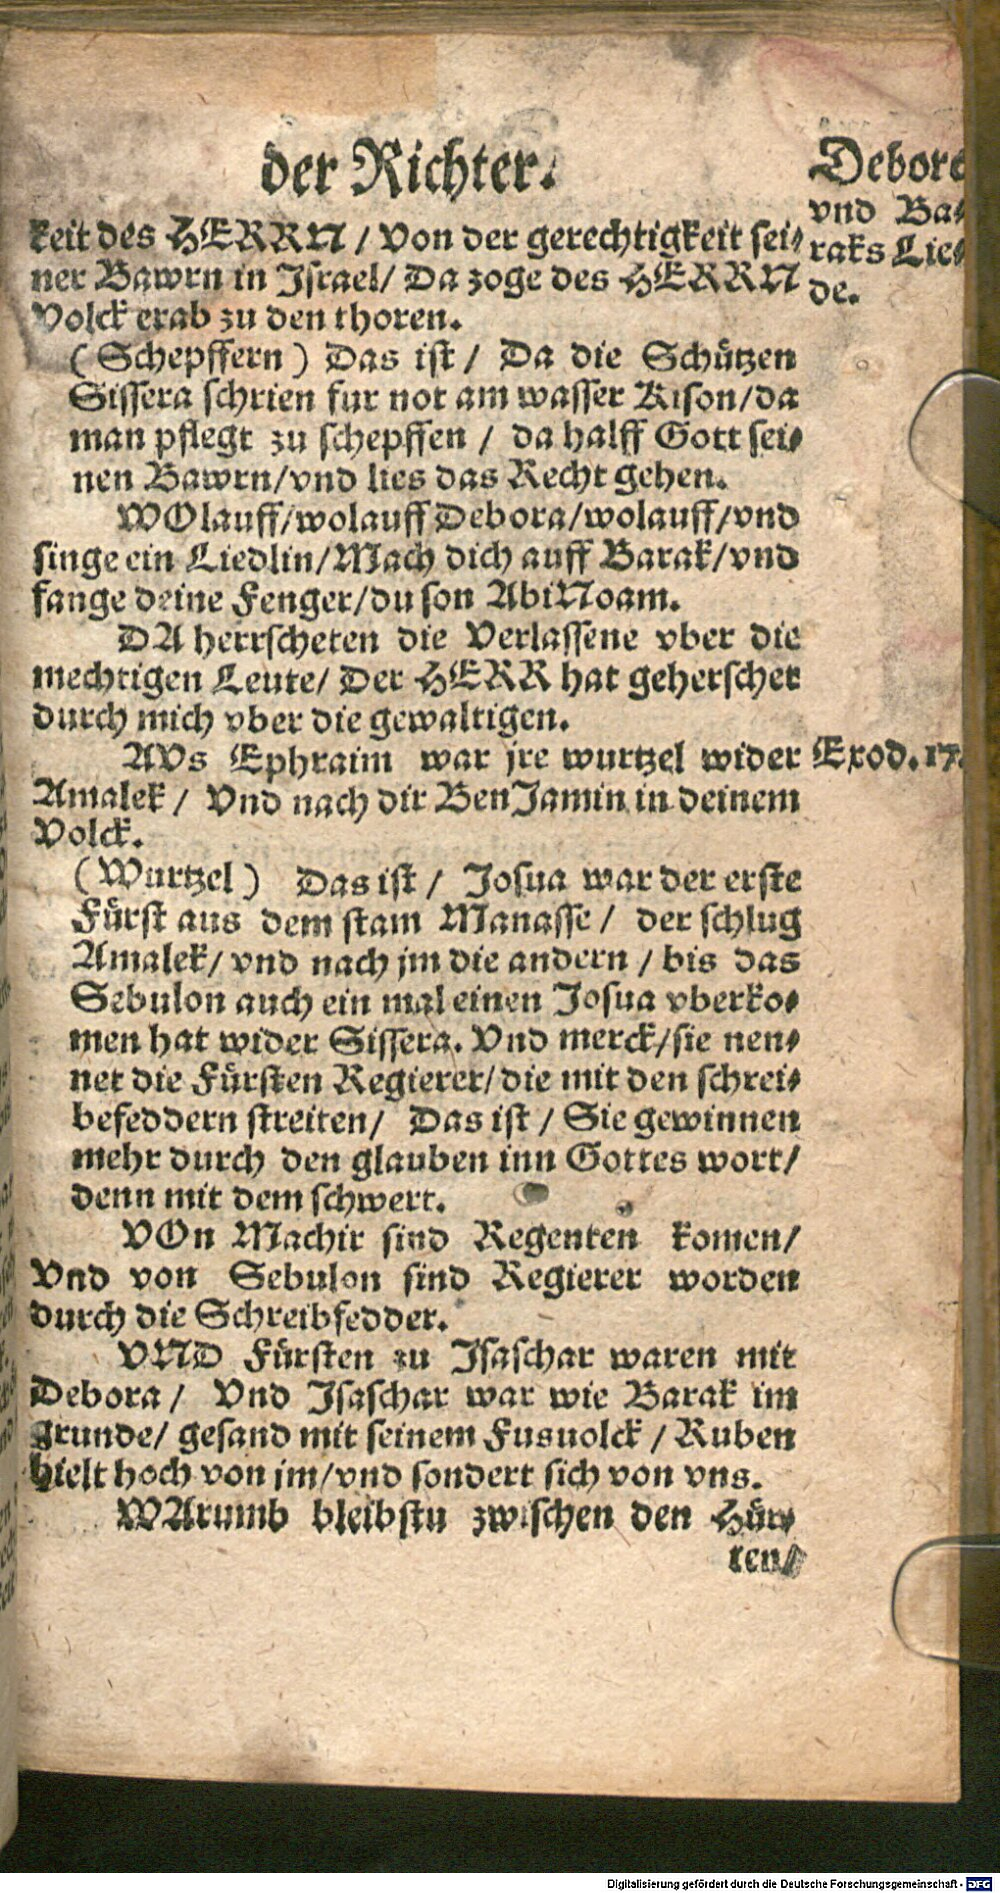 der Richter.
Debore
vnd Ba⸗
raks Lie⸗
de.
keit des HERRN / von der gerechtigkeit sei⸗
ner Bawrn in Israel/ Da zoge des HERRN
Volck erab zu den thoren.
(Schepffern) Das ist / Da die Schützen
Sissera schrien fur not am wasser Kison/da
man pflegt zu schepffen / da halff Gott sei⸗
nen Bawrn/vnd lies das Recht gehen.
WOlauff/wolauff Debora/wolauff/vnd
singe ein Liedlin/Mach dich auff Barak/vnd
fange deine Fenger/du son AbiNoam.
DA herrscheten die Verlassene vber die
mechtigen Leute/ Der HERR hat geherschet
durch mich vber die gewaltigen.
AVs Ephraim war jre wurtzel wider
Exod. 17.
Amalek / Vnd nach dir BenJamin in deinem
Volck.
(Wurtzel) Das ist / Josua war der erste
Fürst aus dem stam Manasse / der schlug
Amalek/ vnd nach jm die andern / bis das
Sebulon auch ein mal einen Josua vberko⸗
men hat wider Sissera. Vnd merck/sie nen⸗
net die Fürsten Regierer/die mit den schrei⸗
befeddern streiten/ Das ist / Sie gewinnen
mehr durch den glauben inn Gottes wort/
denn mit dem schwert.
VOn Machir sind Regenten komen/
Vnd von Sebulon sind Regierer worden
durch die Schreibfedder.
VND Fürsten zu Isaschar waren mit
Debora / Vnd Isaschar war wie Barak im
grunde/ gesand mit seinem Fusuolck / Ruben
hielt hoch von jm/vnd sondert sich von vns.
WArumb bleibstu zwischen den Hür⸗
ten/
Digitalisierung gefördert durch die Deutsche Forschungsgemeinschaft - DFG